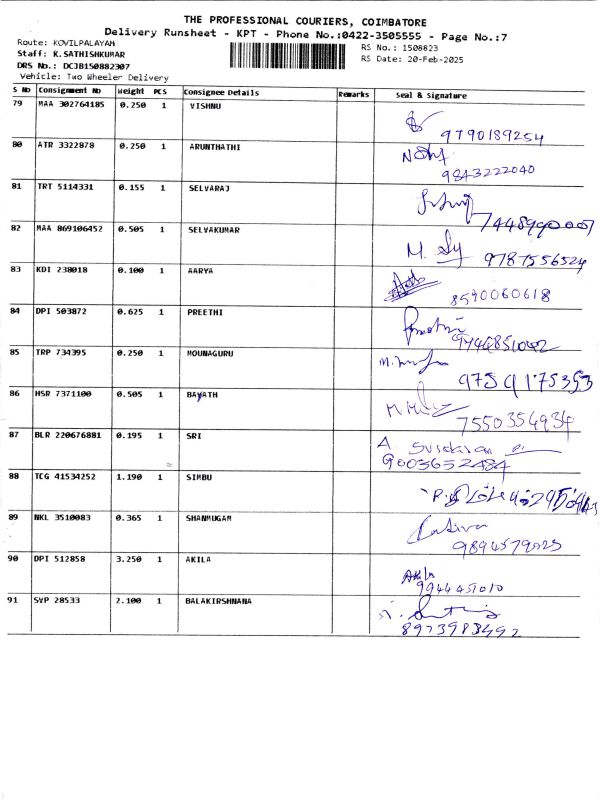 THE PROFESSIONAL COURIERS, COIMBATORE
Delivery Runsheet - KPT - Phone No.:0422-3505555 - Page No.:7
Route: KOVILPALAYAM
RS No.: 1508823
Staff: K.SATHISHKUMAR
RS Date: 20-Feb-2025
DRS No.: DCJB150882307
Vehicle: Two Wheeler Delivery
S No Consignment No Weight PCS Consignee Details Remarks Seal & Signature
79 MAA 302764185 0.250 1 VISHNU
9790189254
80 ATR 3322878 0.250 1 ARUNTHATHI
9843222040
81 TRT 5114331 0.155 1 SELVARAJ
7448990007
82 MAA 869106452 0.505 1 SELVAKUMAR
M. 9787556524
83 KDI 238018 0.100 1 AARYA
8590060618
84 DPI 503872 0.625 1 PREETHI
85 TRP 734395 0.250 1 MOUNAGURU
9759175353
86 HSR 7371100 0.505 1 BAYATH
7550354934
87 BLR 220676881 0.195 1 SRI
A
9003652484
88 TCG 41534252 1.190 1 SIMBU
89 NKL 3510083 0.365 1 SHANMUGAM
9894579025
90 DPI 512858 3.250 1 AKILA
Akila
9944451010
91 SVP 28533 2.100 1 BALAKIRSHNANA
8973983492